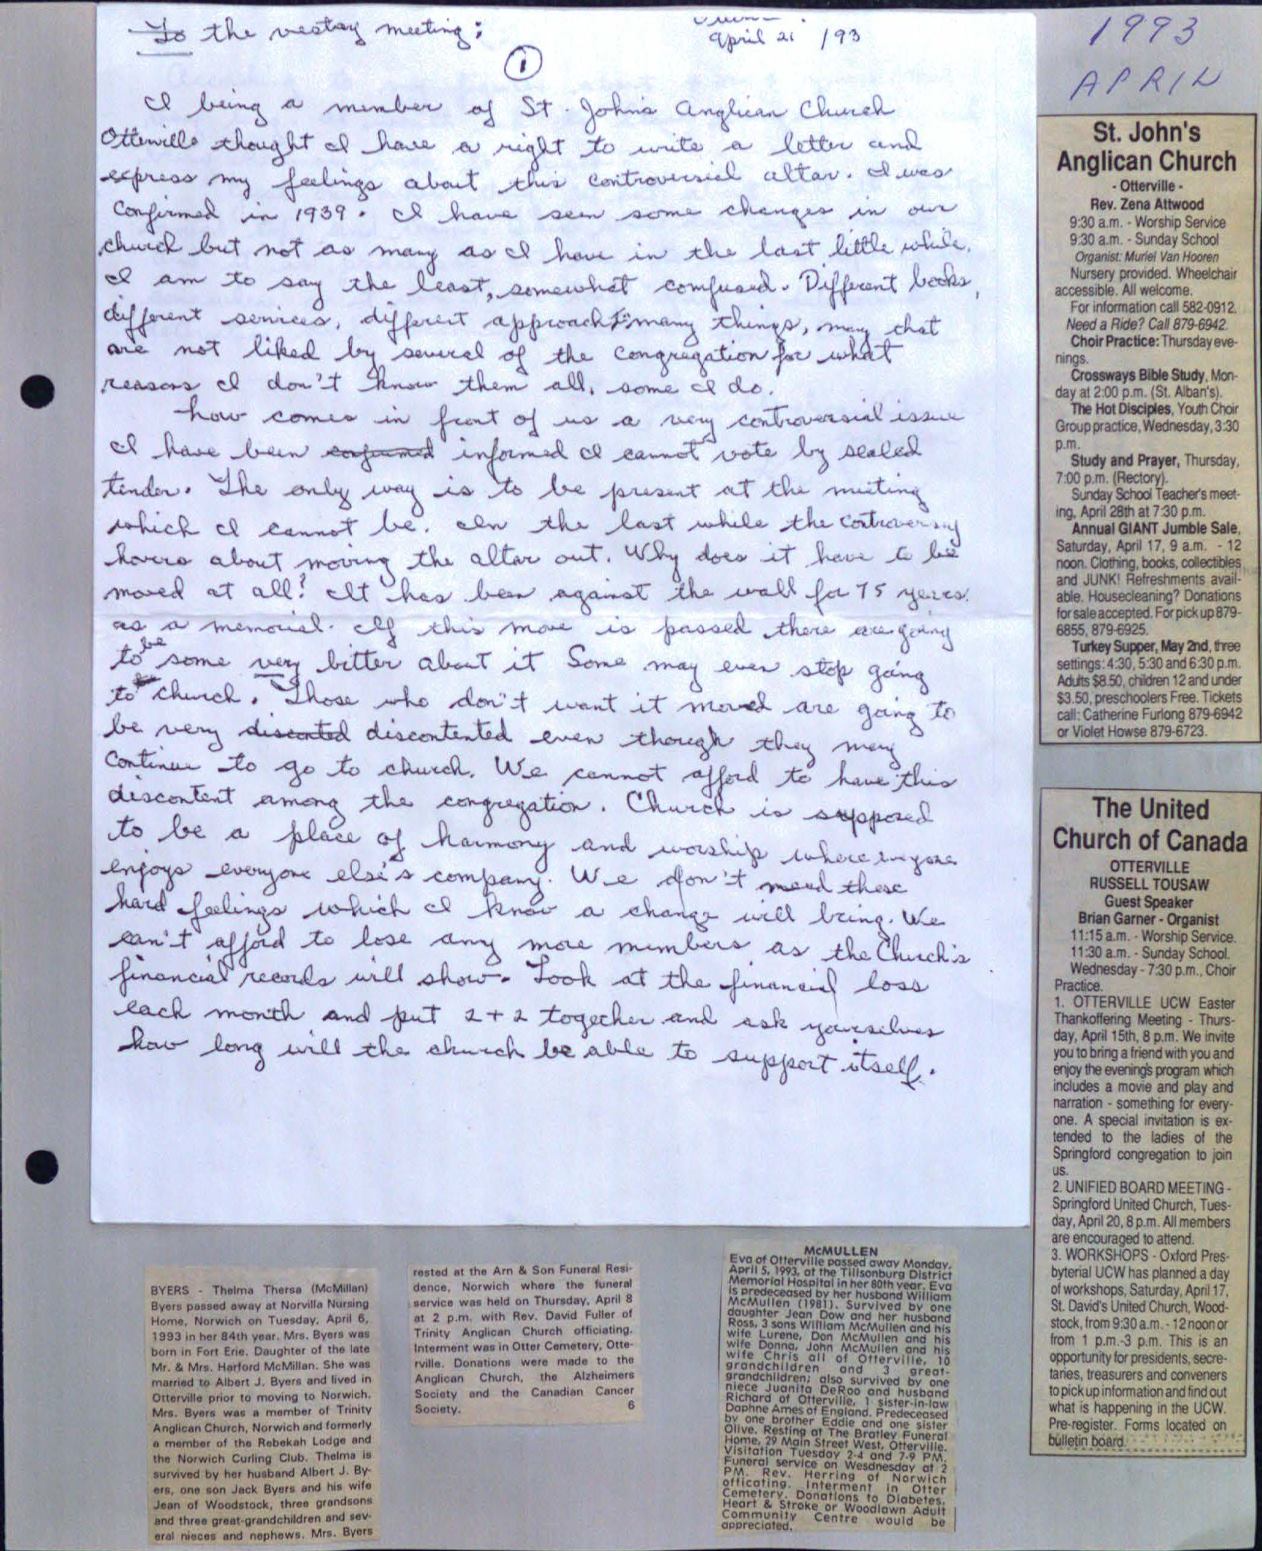 To the vestry meeting:
April 21 /93
1
I being a member of St. John's Anglican Church
Otterville thought I have a right to write a letter and
express my feelings about this controversial altar. I was
Confirmed in 1939. I have seen some changes in our
church but not as many as I have in the last little while.
I am to say the least, somewhat confused. Different books,
different services, different approach to many things, many that
are not liked by several of the congregation for what
reasons I don't know them all, some I do.
how comes in front of us a very controversial issue
I have been confirmed informed I cannot vote by sealed
tender. The only way is to be present at the meeting
which I cannot be. In the last while the controversy
hovers about moving the altar out. Why does it have to be
moved at all? It has been against the wall for 75 years
as a memorial. If this move is passed there are going
to be some very bitter about it Some may even stop going
to church. Those who don't want it moved are going to
be very disconted discontented even though they may
Continue to go to church. We cannot afford to have this
discontent among the congregation. Church is supposed
to be a place of harmony and worship where everyone
enjoys everyone else's company. We don't need these
hard feelings which I know a change will bring. We
can't afford to lose any more members as the Church's
financial records will show. Look at the financial loss
each month and put 2+2 together and ask yourselves
how long will the church be able to support itself.
1993
APRIL
St. John's
Anglican Church
- Otterville -
Rev. Zena Attwood
9:30 a.m. - Worship Service
9:30 a.m. - Sunday School
Organist: Muriel Van Hooren
Nursery provided. Wheelchair
accessible. All welcome.
For information call 582-0912.
Need a Ride? Call 879-6942.
Choir Practice: Thursday eve-
nings.
Crossways Bible Study, Mon-
day at 2:00 p.m. (St. Alban's).
The Hot Disciples, Youth Choir
Group practice, Wednesday, 3:30
p.m.
Study and Prayer, Thursday,
7:00 p.m. (Rectory).
Sunday School Teacher's meet-
ing, April 28th at 7:30 p.m.
Annual GIANT Jumble Sale,
Saturday, April 17, 9 a.m. - 12
noon. Clothing, books, collectibles
and JUNK! Refreshments avail-
able. Housecleaning? Donations
for sale accepted. For pick up 879-
6855, 879-6925.
Turkey Supper, May 2nd, three
settings: 4:30, 5:30 and 6:30 p.m.
Adults $8.50, children 12 and under
$3.50, preschoolers Free. Tickets
call: Catherine Furlong 879-6942
or Violet Howse 879-6723.
The United
Church of Canada
OTTERVILLE
RUSSELL TOUSAW
Guest Speaker
Brian Garner - Organist
11:15 a.m. - Worship Service.
11:30 a.m. - Sunday School.
Wednesday - 7:30 p.m., Choir
Practice.
1. OTTERVILLE UCW Easter
Thankoffering Meeting - Thurs-
day, April 15th, 8 p.m. We invite
you to bring a friend with you and
enjoy the evening's program which
includes a movie and play and
narration - something for every-
one. A special invitation is ex-
tended to the ladies of the
Springford congregation to join
us.
2. UNIFIED BOARD MEETING -
Springford United Church, Tues-
day, April 20, 8 p.m. All members
are encouraged to attend.
3. WORKSHOPS - Oxford Pres-
byterial UCW has planned a day
of workshops, Saturday, April 17,
St. David's United Church, Wood-
stock, from 9:30 a.m. - 12 noon or
from 1 p.m.-3 p.m. This is an
opportunity for presidents, secre-
taries, treasurers and conveners
to pick up information and find out
what is happening in the UCW.
Pre-register. Forms located on
bulletin board.
BYERS - Thelma Thersa (McMillan)
Byers passed away at Norvilla Nursing
Home, Norwich on Tuesday, April 6,
1993 in her 84th year. Mrs. Byers was
born in Fort Erie. Daughter of the late
Mr. & Mrs. Harford McMillan. She was
married to Albert J. Byers and lived in
Otterville prior to moving to Norwich.
Mrs. Byers was a member of Trinity
Anglican Church, Norwich and formerly
a member of the Rebekah Lodge and
the Norwich Curling Club. Thelma is
survived by her husband Albert J. By-
ers, one son Jack Byers and his wife
Jean of Woodstock, three grandsons
and three great-grandchildren and sev-
eral nieces and nephews. Mrs. Byers
rested at the Arn & Son Funeral Resi-
dence, Norwich where the funeral
service was held on Thursday, April 8
at 2 p.m. with Rev. David Fuller of
Trinity Anglican Church officiating.
Interment was in Otter Cemetery, Otte-
rville. Donations were made to the
Anglican Church, the Alzheimers
Society and the Canadian Cancer
Society. 6
McMULLEN
Eva of Otterville passed away Monday,
April 5, 1993, at the Tillsonburg District
Memorial Hospital in her 80th year. Eva
is predeceased by her husband William
McMullen (1981). Survived by one
daughter Jean Dow and her husband
Ross, 3 sons William McMullen and his
wife Lurene, Don McMullen and his
wife Donna, John McMullen and his
wife Chris all of Otterville, 10
grandchildren and 3 great-
grandchildren; also survived by one
niece Juanita DeRoo and husband
Richard of Otterville, 1 sister-in-law
Daphne Ames of England. Predeceased
by one brother Eddie and one sister
Olive. Resting at The Bratley Funeral
Home, 29 Main Street West, Otterville.
Visitation Tuesday 2-4 and 7-9 PM.
Funeral service on Wesdnesday at 2
PM. Rev. Herring of Norwich
officating. Interment in Otter
Cemetery. Donations to Diabetes,
Heart & Stroke or Woodlawn Adult
Community Centre would be
appreciated.